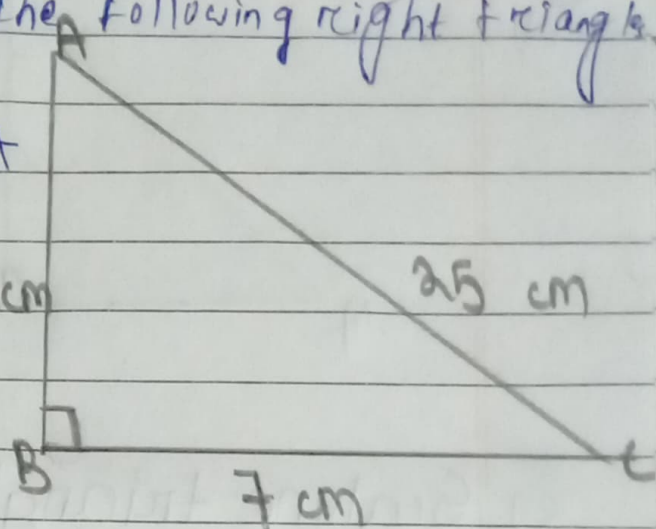 the following right triangle
A
cm
25 cm
B
C
7 cm